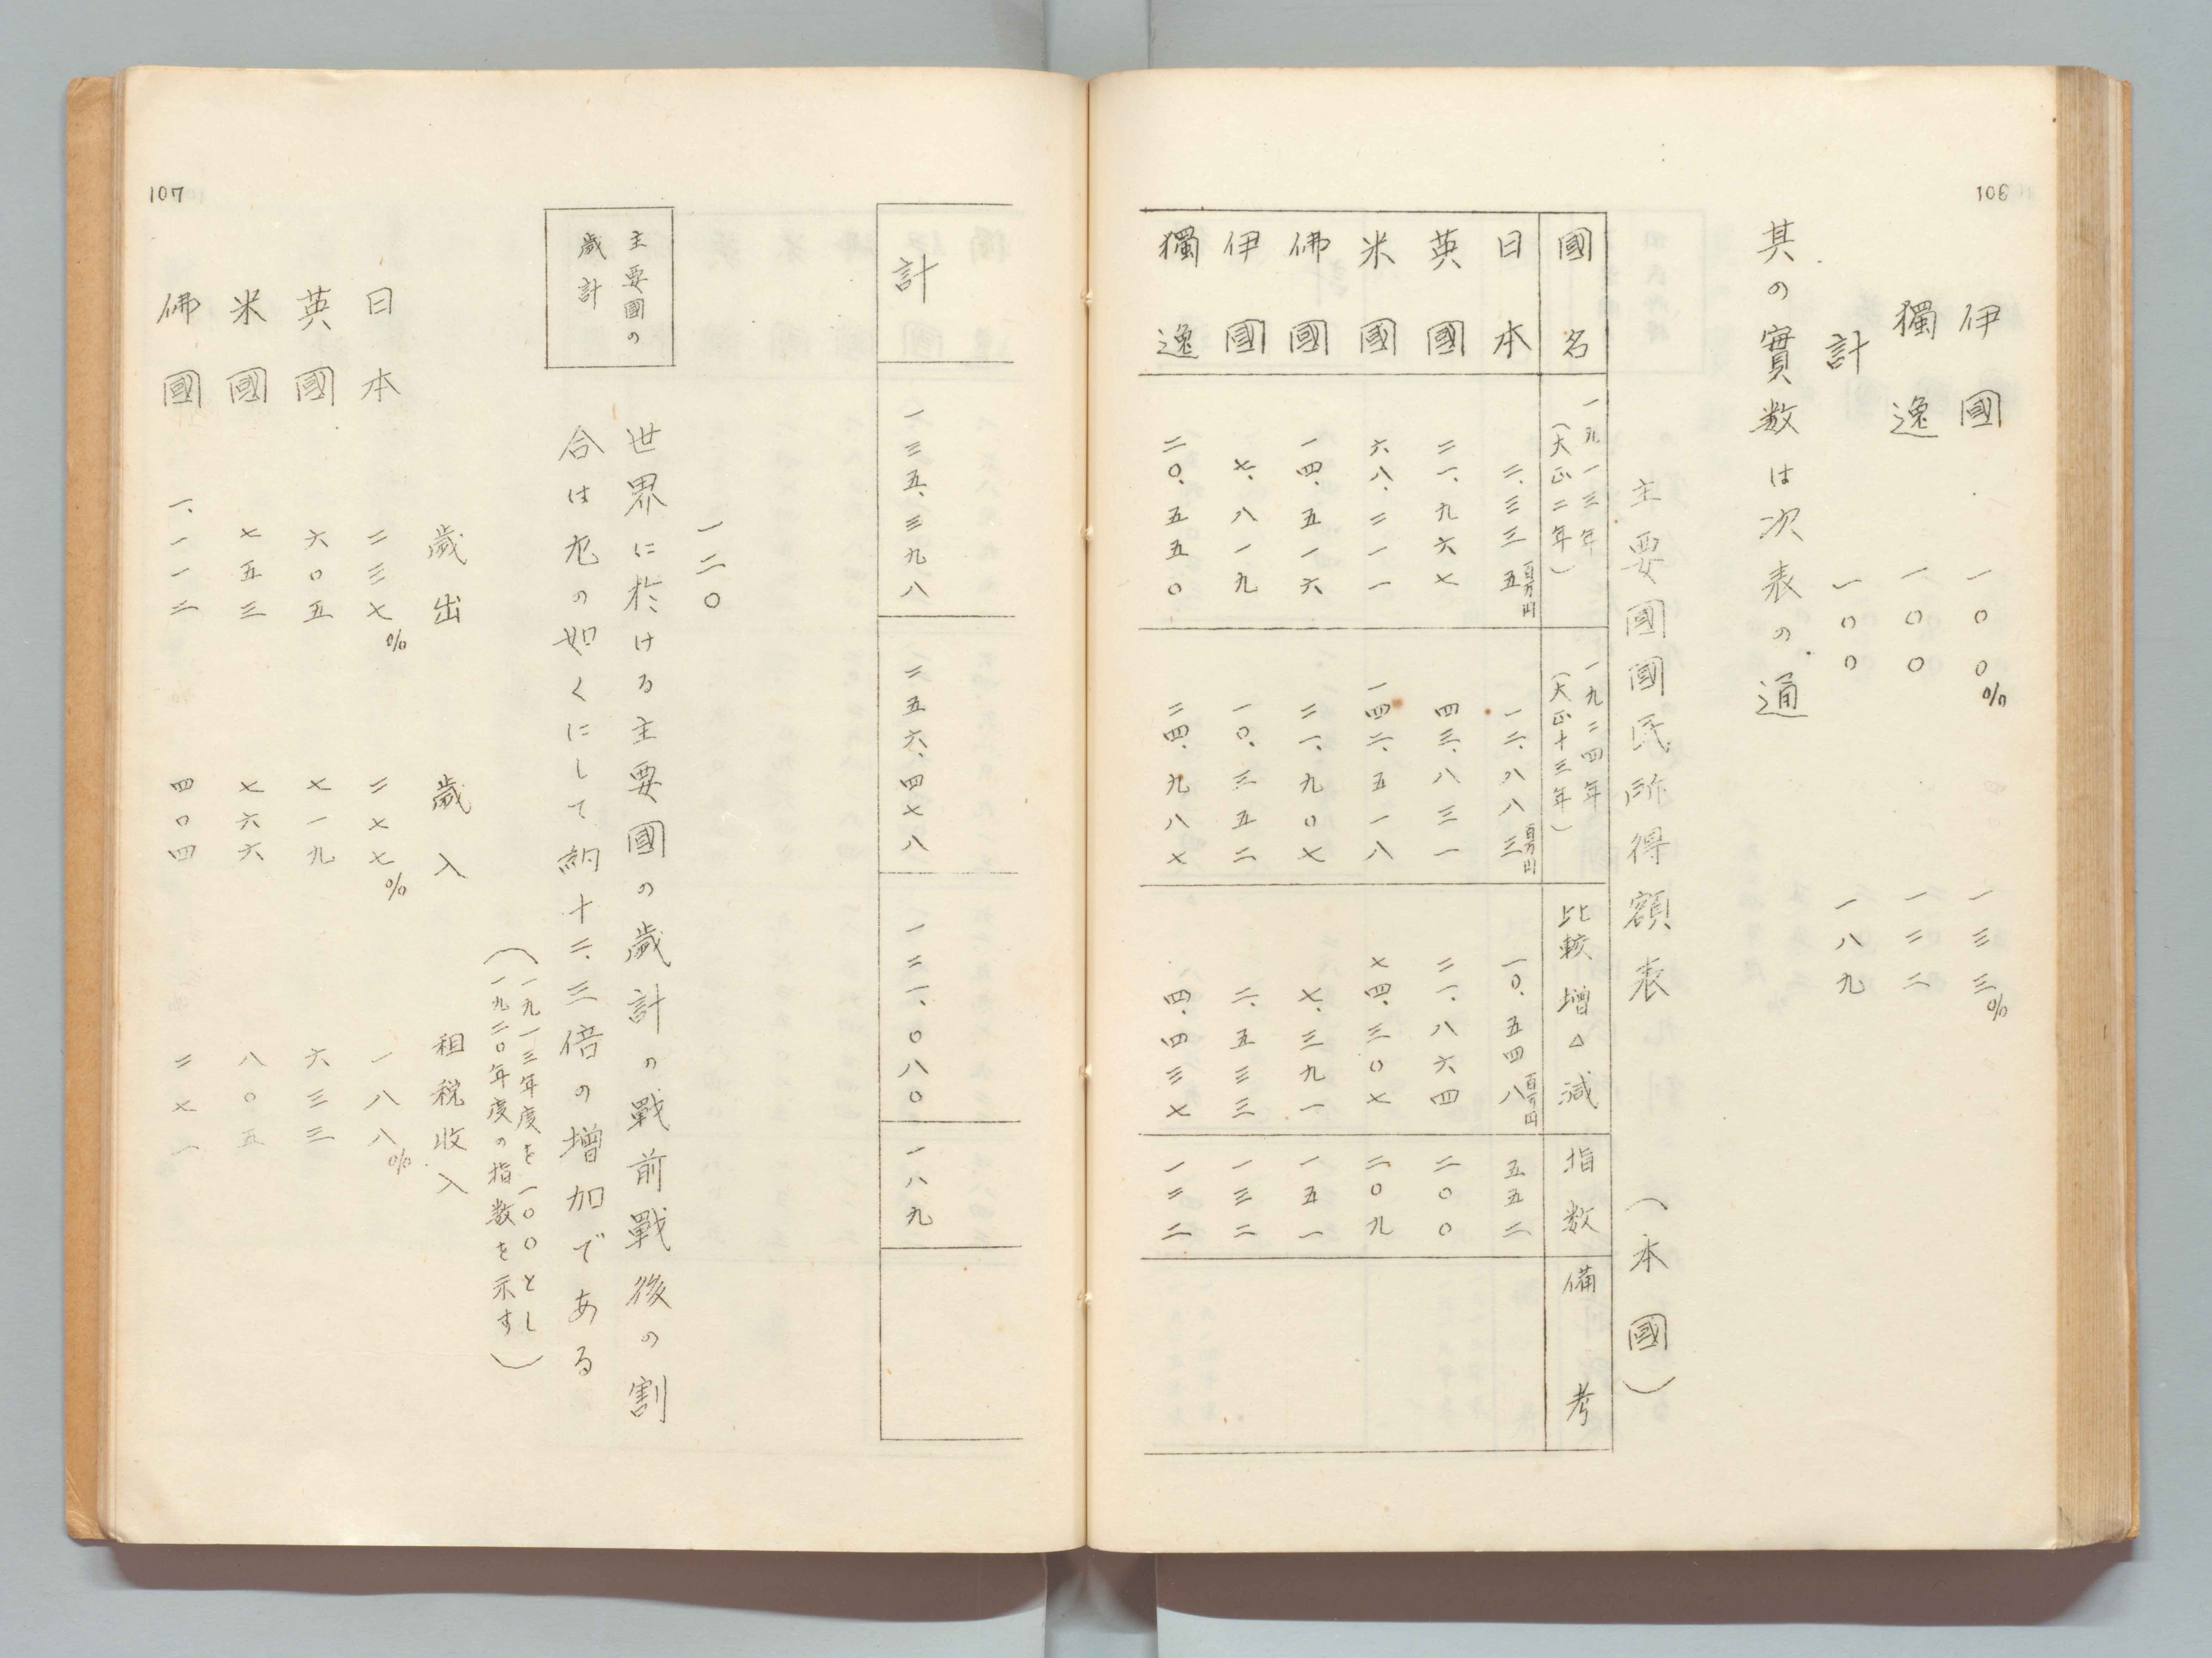 106
伊國 一〇〇% 一三三%
獨逸 一〇〇 一二二
計 一〇〇 一八九
其の實数は次表の通
主要國國民所得額表 (本國)
國名 一九一三年(大正二年) 一九二四年(大正十三年) 比較増△減 指数 備考
日本 二、三三五百万円 一二、八八三百万円 一〇、五四八百万円 五五二
英國 二一、九六七 四三、八三一 二一、八六四 二〇〇
米國 六八、二一一 一四二、五一八 七四、三〇七 二〇九
佛國 一四、五一六 二一、九〇七 七、三九一 一五一
伊國 七、八一九 一〇、三五二 二、五三三 一三二
獨逸 二〇、五五〇 二四、九八七 四、四三七 一二二
計 一三五、三九八 二五六、四七八 一二一、〇八〇 一八九
一二〇
主要國の
歳計
世界に於ける主要國の歳計の戰前戰後の割
合は左の如くにして約十二、三倍の増加である
(一九一三年度を一〇〇とし
一九二〇年度の指数を示す)
歳出 歳入 租税收入
日本 二三七% 二七七% 一八八%
英國 六〇五 七一九 六三三
米國 七五三 七六六 八〇五
佛國 一、一一二 四〇四 二七一
107